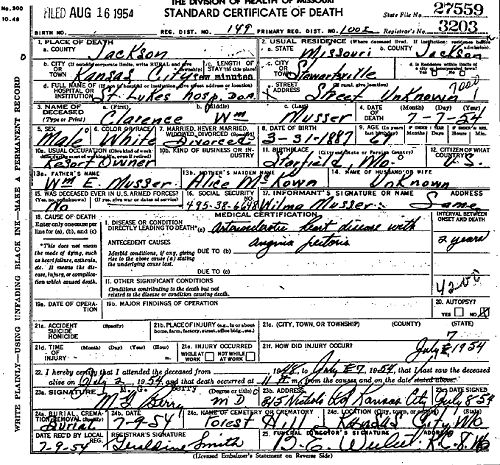 No. 300
10-48
THE DIVISION OF HEALTH OF MISSOURI
FILED AUG 16 1954 STANDARD CERTIFICATE OF DEATH State File No. 27559
BIRTH NO. REG. DIST. NO. 149 PRIMARY REG. DIST. NO. 1002 Registrar's No. 3203
1. PLACE OF DEATH
a. COUNTY Jackson
2. USUAL RESIDENCE (Where deceased lived. If institution: residence before
a. STATE Missouri b. COUNTY Jackson
b. CITY (If outside corporate limits, write RURAL and give
OR TOWN Kansas City c. LENGTH OF STAY (in this place) few minutes
c. CITY OR TOWN Stewartsville
d. FULL NAME OF HOSPITAL OR INSTITUTION St Lukes Hosp. DOA
d. STREET ADDRESS Street Unknown
3. NAME OF DECEASED (Type or Print) a. (First) Clarence b. (Middle) Wm c. (Last) Musser 4. DATE OF DEATH (Month) (Day) (Year) 7-7-54
5. SEX Male 6. COLOR OR RACE White 7. MARRIED, NEVER MARRIED, WIDOWED, DIVORCED (Specify) Divorced 8. DATE OF BIRTH 3-31-1887 9. AGE (In years
10a. USUAL OCCUPATION Resort Owner 10b. KIND OF BUSINESS OR INDUSTRY 11. BIRTHPLACE Starfield, Mo. 12. CITIZEN OF WHAT COUNTRY? U.S.
13a. FATHER'S NAME Wm E. Musser 13b. MOTHER'S MAIDEN NAME Alice McKown 14. NAME OF HUSBAND OR WIFE Unknown
15. WAS DECEASED EVER IN U.S. ARMED FORCES? No 16. SOCIAL SECURITY NO. 495-38-6648 17. INFORMANT'S SIGNATURE OR NAME Wilma Musser ADDRESS Same
18. CAUSE OF DEATH
Enter only one cause per line for (a), (b), and (c)
MEDICAL CERTIFICATION
INTERVAL BETWEEN ONSET AND DEATH
I. DISEASE OR CONDITION DIRECTLY LEADING TO DEATH* (a) heart disease with
*This does not mean the mode of dying, such as heart failure, asthenia, etc. It means the disease, injury, or complication which caused death.
ANTECEDENT CAUSES
Morbid conditions, if any, giving rise to the above cause (a) stating the underlying cause last.
DUE TO (b) angina pectoris 2 years
DUE TO (c)
II. OTHER SIGNIFICANT CONDITIONS
Conditions contributing to the death but not related to the disease or condition causing death.
4200
19a. DATE OF OPERATION 19b. MAJOR FINDINGS OF OPERATION 20. AUTOPSY? YES NO
21a. ACCIDENT SUICIDE HOMICIDE (Specify) 21b. PLACE OF INJURY (e.g., in or about home, farm, factory, street, office bldg., etc.) 21c. (CITY, TOWN, OR TOWNSHIP) (COUNTY) (STATE)
21d. TIME OF INJURY (Month) (Day) (Year) (Hour) 21e. INJURY OCCURRED WHILE AT WORK NOT WHILE AT WORK 21f. HOW DID INJURY OCCUR?
22. I hereby certify that I attended the deceased from 1948, to July 7, 1954, that I last saw the deceased
alive on July 2, 1954, and that death occurred at m., from the causes and on the date stated above.
23a. SIGNATURE M. G. Berry M D 23b. ADDRESS 815 Nichols Rd Kansas City July 8-54
24a. BURIAL, CREMATION, REMOVAL (Specify) Burial 24b. DATE 7-9-54 24c. NAME OF CEMETERY OR CREMATORY Forest Hill 24d. LOCATION (City, town, or county) (State) Kansas City Mo
DATE REC'D BY LOCAL REG. 7-9-54 REGISTRAR'S SIGNATURE Geraldine Smith 25. FUNERAL DIRECTOR'S SIGNATURE ADDRESS
(Licensed Embalmer's Statement on Reverse Side)
WRITE PLAINLY—USING UNFADING BLACK INK—MAKE A PERMANENT RECORD